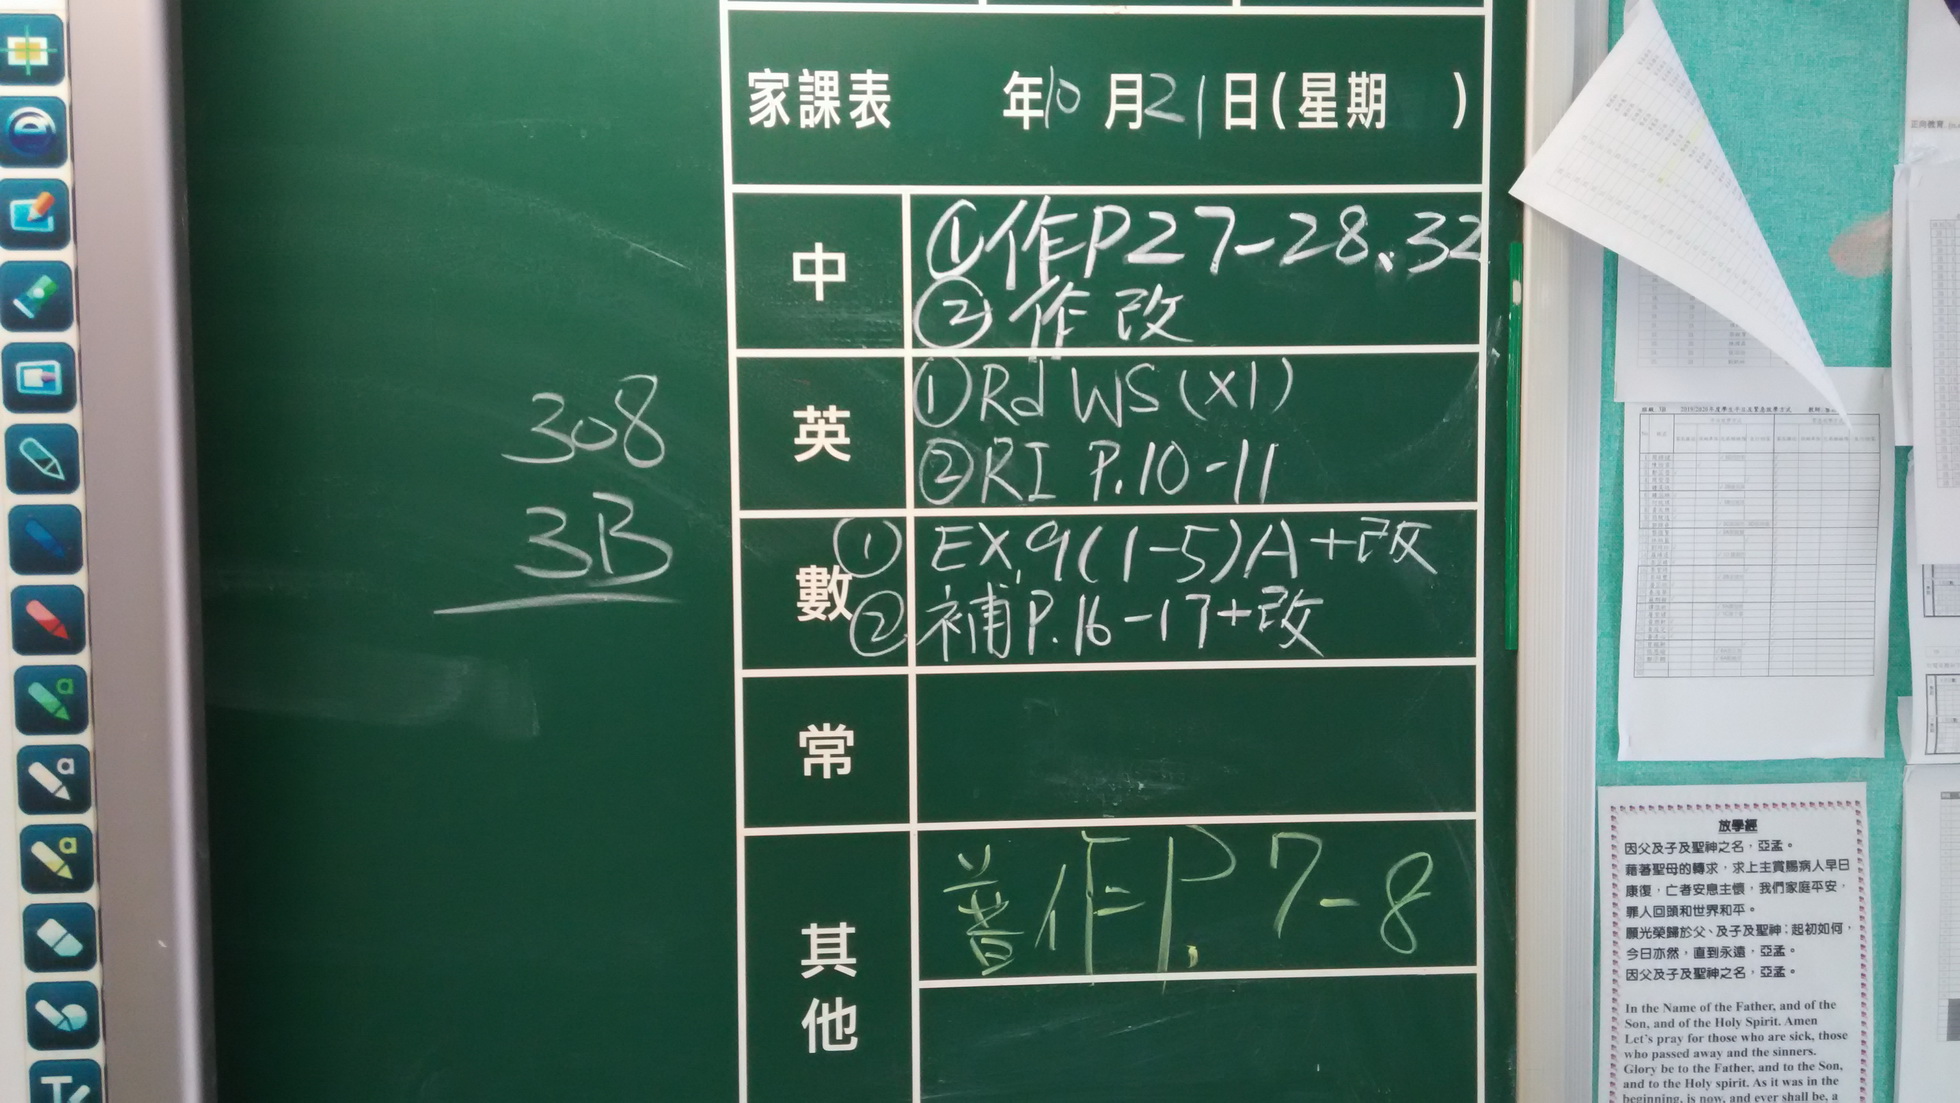 家課表 年10月21日(星期 )
中
①作P27-28、32
②作改
英
①Rd WS(X1)
②RI P.10-11
數
①EX.9(1-5)A+改
②補P.16-17+改
常
其他
普作P.7-8
308
3B
正向教育
2019/2020年度學生平日及緊急放學方式
放學經
因父及子及聖神之名，亞孟。
藉著聖母的轉求，求上主賞賜病人早日
康復，亡者安息主懷，我們家庭平安，
罪人回頭和世界和平。
願光榮歸於父、及子及聖神；起初如何，
今日亦然，直到永遠，亞孟。
因父及子及聖神之名，亞孟。
In the Name of the Father, and of the
Son, and of the Holy Spirit. Amen
Let's pray for those who are sick, those
who passed away and the sinners.
Glory be to the Father, and to the Son,
and to the Holy spirit. As it was in the
beginning, is now, and ever shall be, a